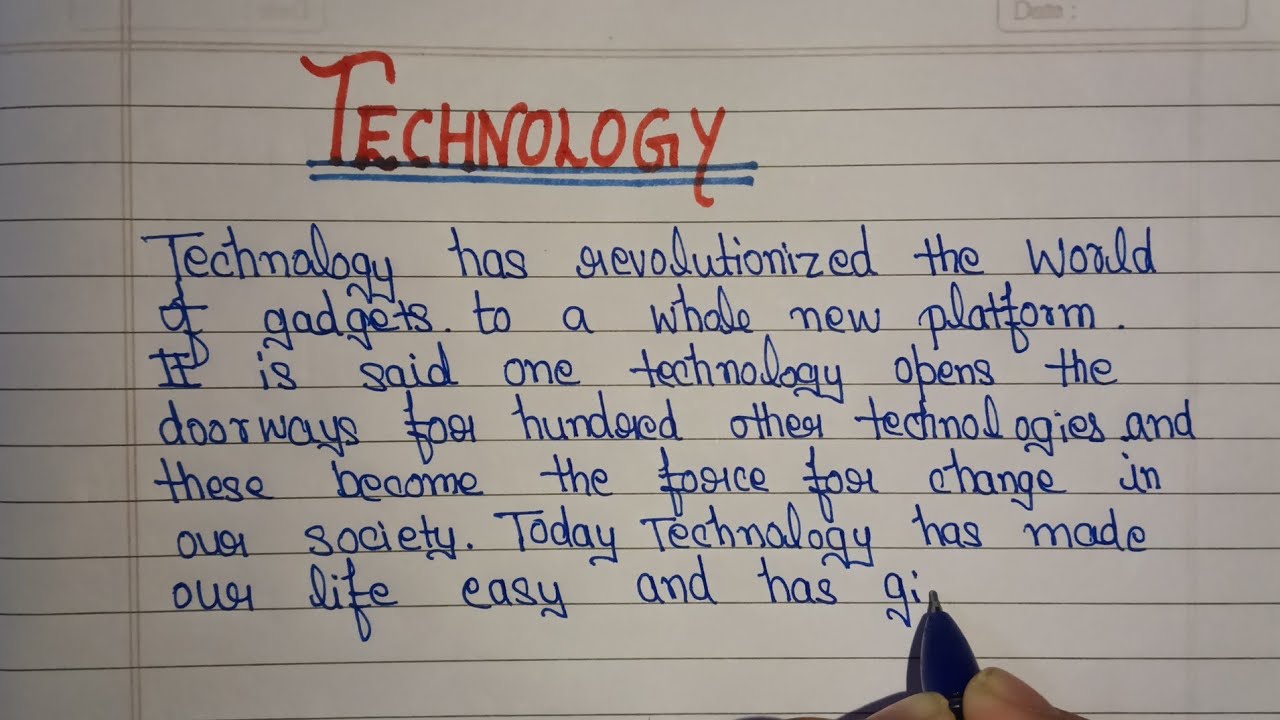 Date :
TECHNOLOGY
Technology has revolutionized the World
of gadgets. to a whole new platform.
It is said one technology opens the
doorways for hundred other technologies and
these become the force for change in
our society. Today Technology has made
our life easy and has gi